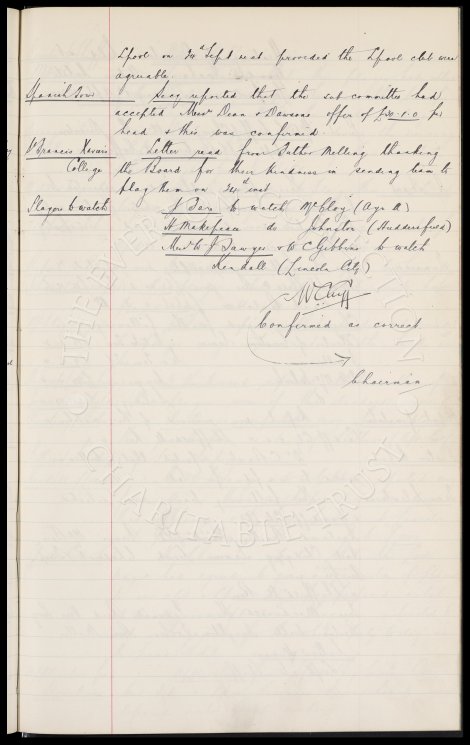 Lpool on 24th Sept next provided the Lpool club were
agreeable.
Spanish Tour Secy reported that the sub committee had
accepted Messrs Dean & Dawsons offer of £30.1.0 per
head & this was confirmed.
St Francis Xavier's Letter read from Father Melling thanking
College the Board for their kindness in sending team to
play them on inst
Players to watch to watch McCloy (Ayr U)
H Makepeace do Johnston (Huddersfield)
Messrs W J Sawyer & W C Gibbins to watch
Kendall (Lincoln City)
W C Cuff
Confirmed as correct
Chairman
THE EVERTON COLLECTION
CHARITABLE TRUST